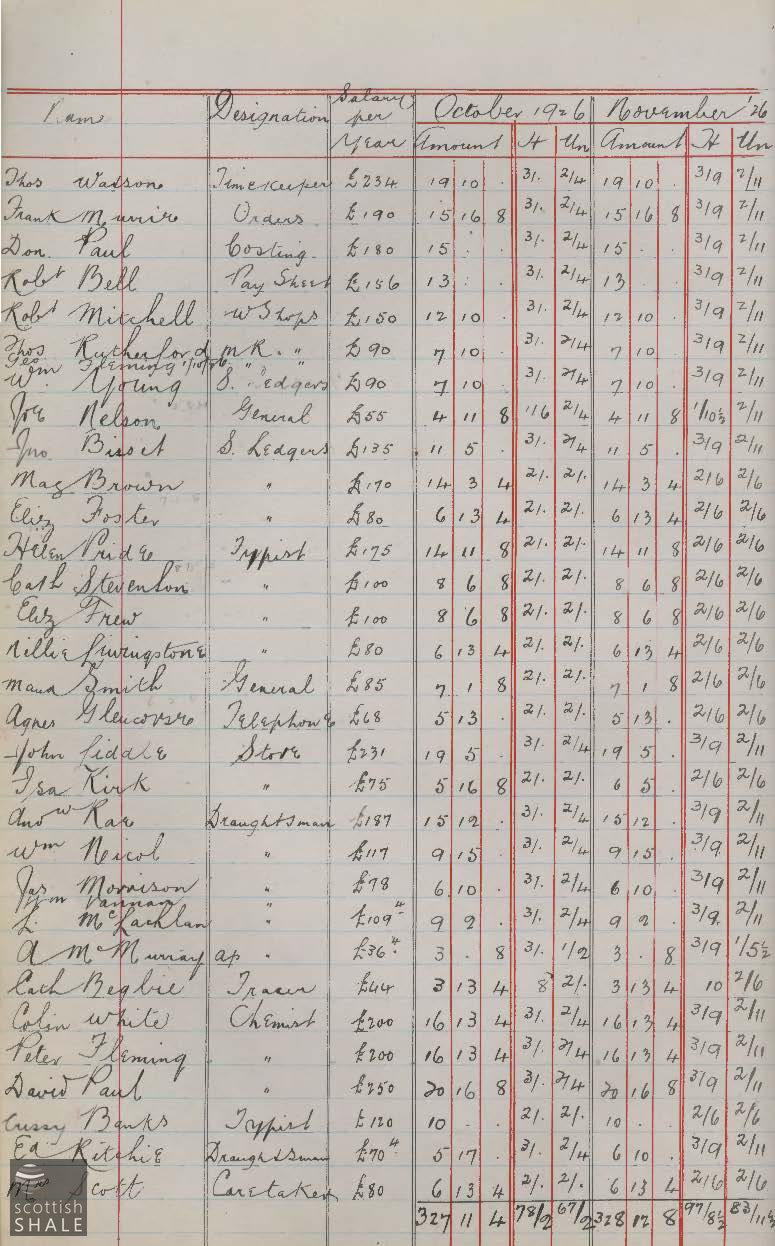 Name Designation Salary per Year October 1926 November '26
Amount H Un Amount H Un
Thos Watson Timekeeper £234 19 10 . 3/. 2/4 19 10 . 3/9 2/11
Frank Murrie Orders £190 15 16 8 3/. 2/4 15 16 8 3/9 2/11
Don. Paul Costing £180 15 . . 3/. 2/4 15 . 3/9 2/11
Robt Bell Pay Sheet £156 13 . . 3/. 2/4 13 . 3/9 2/11
Robt Mitchell W Shops £150 12 10 . 3/. 2/4 12 10 . 3/9 2/11
Thos Rutherford m R. " £90 7 10 3/. 2/4 7 10 3/9 2/11
Geo Fleming " "
Wm Young S. Ledgers £90 7 10 3/. 2/4 7 10 . 3/9 2/11
Joe Nelson General £55 4 11 8 1/6 2/4 4 11 8 1/10½ 2/11
Jno. Bisset S. Ledgers £135 11 5 . 3/. 2/4 11 5 . 3/9 2/11
Mag Brown " £170 14 3 4 2/. 2/. 14 3 4 2/6 2/6
Eliz Foster " £80 6 13 4 2/. 2/. 6 13 4 2/6 2/6
Helen Pride Typist £175 14 11 8 2/. 2/. 14 11 8 2/6 2/6
Cath Stevenson " £100 8 6 8 2/. 2/. 8 6 8 2/6 2/6
Eliz Frew " £100 8 6 8 2/. 2/. 8 6 8 2/6 2/6
Nellie Livingstone " £80 6 13 4 2/. 2/. 6 13 4 2/6 2/6
Maud Smith General £85 7 1 8 2/. 2/. 7 1 8 2/6 2/6
Agnes Glencorse Telephone £68 5 13 . 2/. 2/. 5 13 . 2/6 2/6
John Liddle Store £231 19 5 3/. 2/4 19 5 . 3/9 2/11
Isa Kirk " £75 5 16 8 2/. 2/. 6 5 . 2/6 2/6
Andw Rae Draughtsman £187 15 12 . 3/. 2/4 15 12 . 3/9 2/11
Wm Nicol " £117 9 15 . 3/. 2/4 9 15 . 3/9 2/11
Jas Morrison " £78 6 10 . 3/. 2/4 6 10 . 3/9 2/11
Wm Hannan
L. McLachlan " £109 4 9 2 . 3/. 2/4 9 2 . 3/9 2/11
A McMurray ap " £36 4 3 . 8 3/. 1/2 3 . 8 3/9 1/5½
Cath Begbie Tracer £44 3 13 4 8 2/. 3 13 4 10 2/6
Colin White Chemist £200 16 13 4 3/. 2/4 16 13 4 3/9 2/11
Peter Fleming " £200 16 13 4 3/. 2/4 16 13 4 3/9 2/11
David Paul " £250 20 16 8 3/. 2/4 20 16 8 3/9 2/11
Cissy Banks Typist £120 10 . . 2/. 2/. 10 . . 2/6 2/6
Ed. Ritchie Draughtsman £70 4 5 17 . 3/. 2/4 6 10 . 3/9 2/11
Mrs Scott Caretaker £80 6 13 4 2/. 2/. 6 13 4 2/6 2/6
327 11 4 78/2 67/2 328 12 8 97/8½ 83/11½
scottish
SHALE